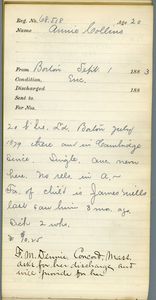 Reg. No. 68.518 Age 20
Name Annie Collins
From Boston Sept. 1 1883
Condition, Enc.
Discharged 188
Sent to
For Nos.
20 b. Ire. Ld. Boston July
1879. there and in Cambridge
since. Single. One here
here. No rels in A.
Fa. of child is James Mills
last saw him 3 mo. ago
Dish 2 wks.
F. M. Dennie, Concord, Mass.
asks for her discharge and
nice provide for her